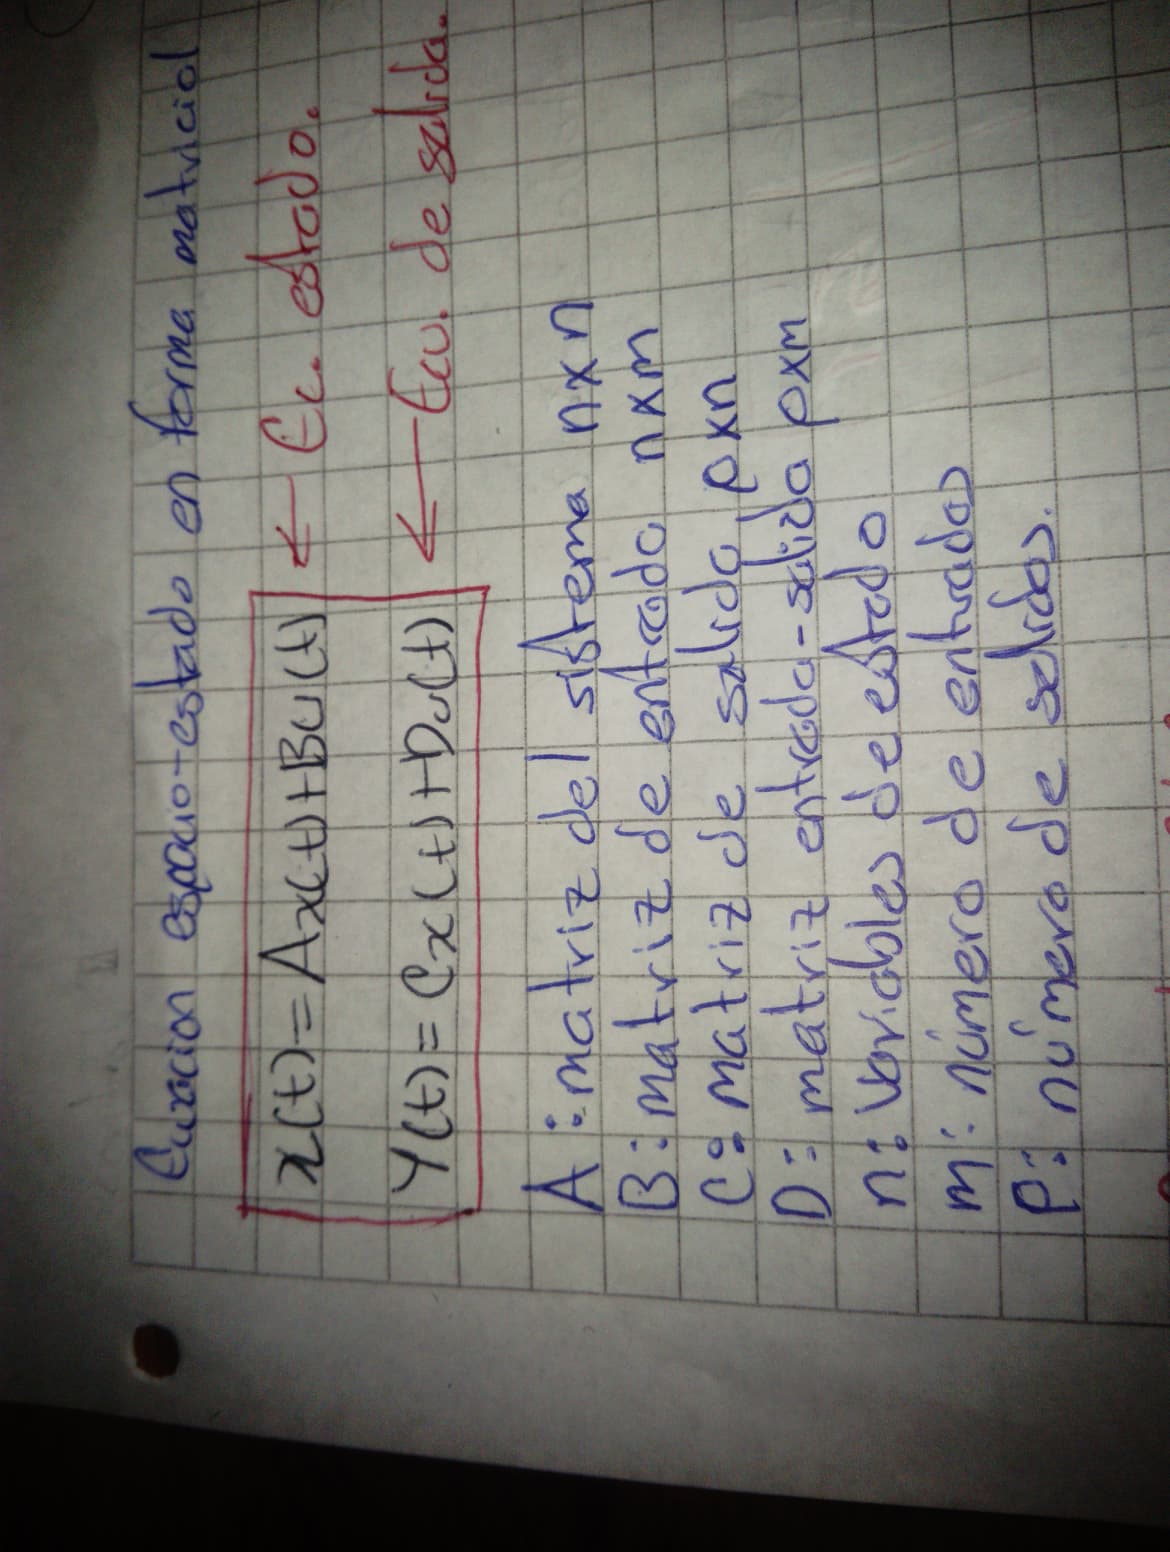 Ecuacion espacio-estado en forma matricial
x(t)=Ax(t)+Bu(t) ← Ec. estado.
Y(t)=Cx(t)+Du(t) ← Ecu. de salida.
A: matriz del sistema nxn
B: matriz de entrada nxm
C: matriz de salida pxn
D: matriz entrada-salida pxm
n: Variables de estado
m: número de entradas
P: número de salidas.